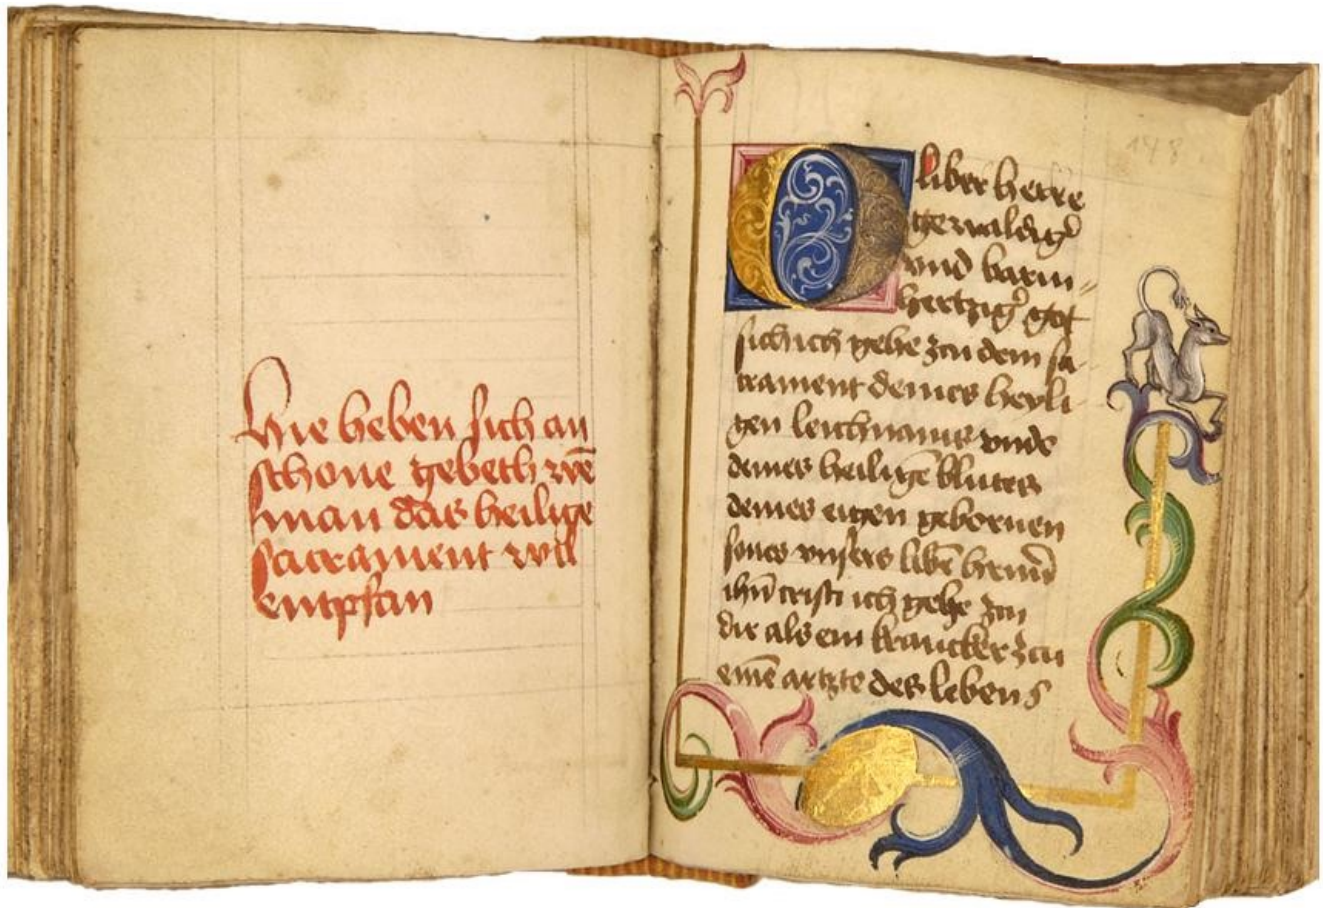 Hie heben sich an
schone gebeth wē
man das heilige
sacrament wil
entpfan
148
O liber herre
gewaldig᷑
vnd barm⸗
hertzig᷑ got
sich ich gehe zcu dem sa-
crament deines heyli
gen leichnams vnde
deines heiligē blutes
deines eigen gebornen
sones vnsers libē herrn̄
ihū cristi ich gehe zcu
dir als ein krancker zcu
einē artzte des lebens